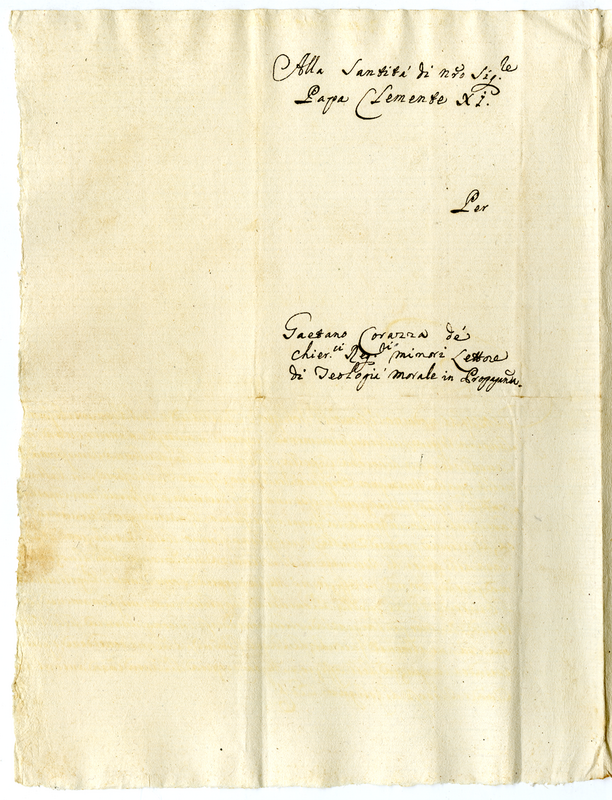 Alla Santità di nr̃o Sig.re
Papa Clemente XI.
Per
Gaetano Corazza de'
Chier.ci Reg.ri minori Lettore
di Teologia Morale in Propagan.